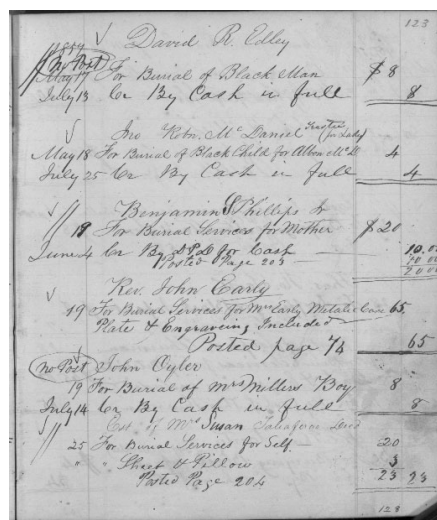 123
1857 David R. Edley
(No Post)
May 17 For Burial of Black Man $ 8
July 13 Cr By Cash in full 8
Jno Robn. Mc Daniel Trustee (for Lady)
May 18 For Burial of Black Child for 4
July 25 Cr By Cash in full 4
Benjamin S Phillips Jr
18 For Burial Services for Mother $ 20
June 4 Cr By for Cash 10.00
Posted Page 203 10 00
20 00
Rev. John Early
19 For Burial Services for Mrs Early Metalic Case 65
Plate & Engraving Included
Posted page 74 65
(No Post) John Oyler
19 For Burial of Mrs Millers Boy 8
July 14 Cr By Cash in full 8
Est. of Mrs Susan Taliaferro Decd
25 For Burial Services for Self 20
" " Sheet & Pillow 3
Posted Page 204 23 23
123